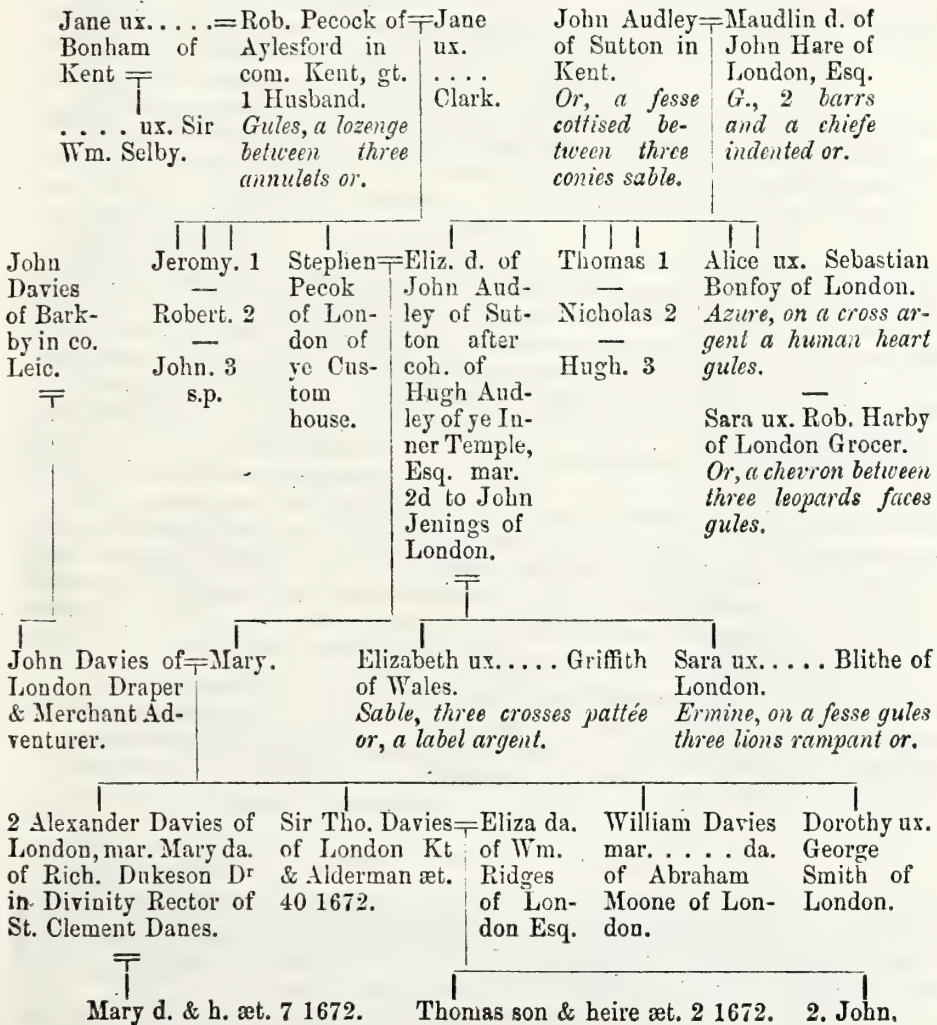 Jane ux.....=
Bonham of
Kent
.... ux. Sir
Wm. Selby.
Rob. Pecock of
Aylesford in
com. Kent, gt.
1 Husband.
Gules, a lozenge
between three
annulets or.
Jane
ux.
....
Clark.
John Audley
of Sutton in
Kent.
Or, a fesse
cottised be-
tween three
conies sable.
Maudlin d. of
John Hare of
London, Esq.
G., 2 barrs
and a chiefe
indented or.
John
Davies
of Bark-
by in co.
Leic.
Jeromy. 1
—
Robert. 2
—
John. 3
s.p.
Stephen
Pecok
of Lon-
don of
ye Cus-
tom
house.
Eliz. d. of
John Aud-
ley of Sut-
ton after
coh. of
Hugh Aud-
ley of ye In-
ner Temple,
Esq. mar.
2d to John
Jenings of
London.
Thomas 1
—
Nicholas 2
—
Hugh. 3
Alice ux. Sebastian
Bonfoy of London.
Azure, on a cross ar-
gent a human heart
gules.
—
Sara ux. Rob. Harby
of London Grocer.
Or, a chevron between
three leopards faces
gules.
John Davies of
London Draper
& Merchant Ad-
venturer.
Mary.
Elizabeth ux..... Griffith
of Wales.
Sable, three crosses pattée
or, a label argent.
Sara ux..... Blithe of
London.
Ermine, on a fesse gules
three lions rampant or.
2 Alexander Davies of
London, mar. Mary da.
of Rich. Dukeson Dr
in Divinity Rector of
St. Clement Danes.
Sir Tho. Davies
of London Kt
& Alderman æt.
40 1672.
Eliza da.
of Wm.
Ridges
of Lon-
don Esq.
William Davies
mar..... da.
of Abraham
Moone of Lon-
don.
Dorothy ux.
George
Smith of
London.
Mary d. & h. æt. 7 1672.
Thomas son & heire æt. 2 1672.
2. John.